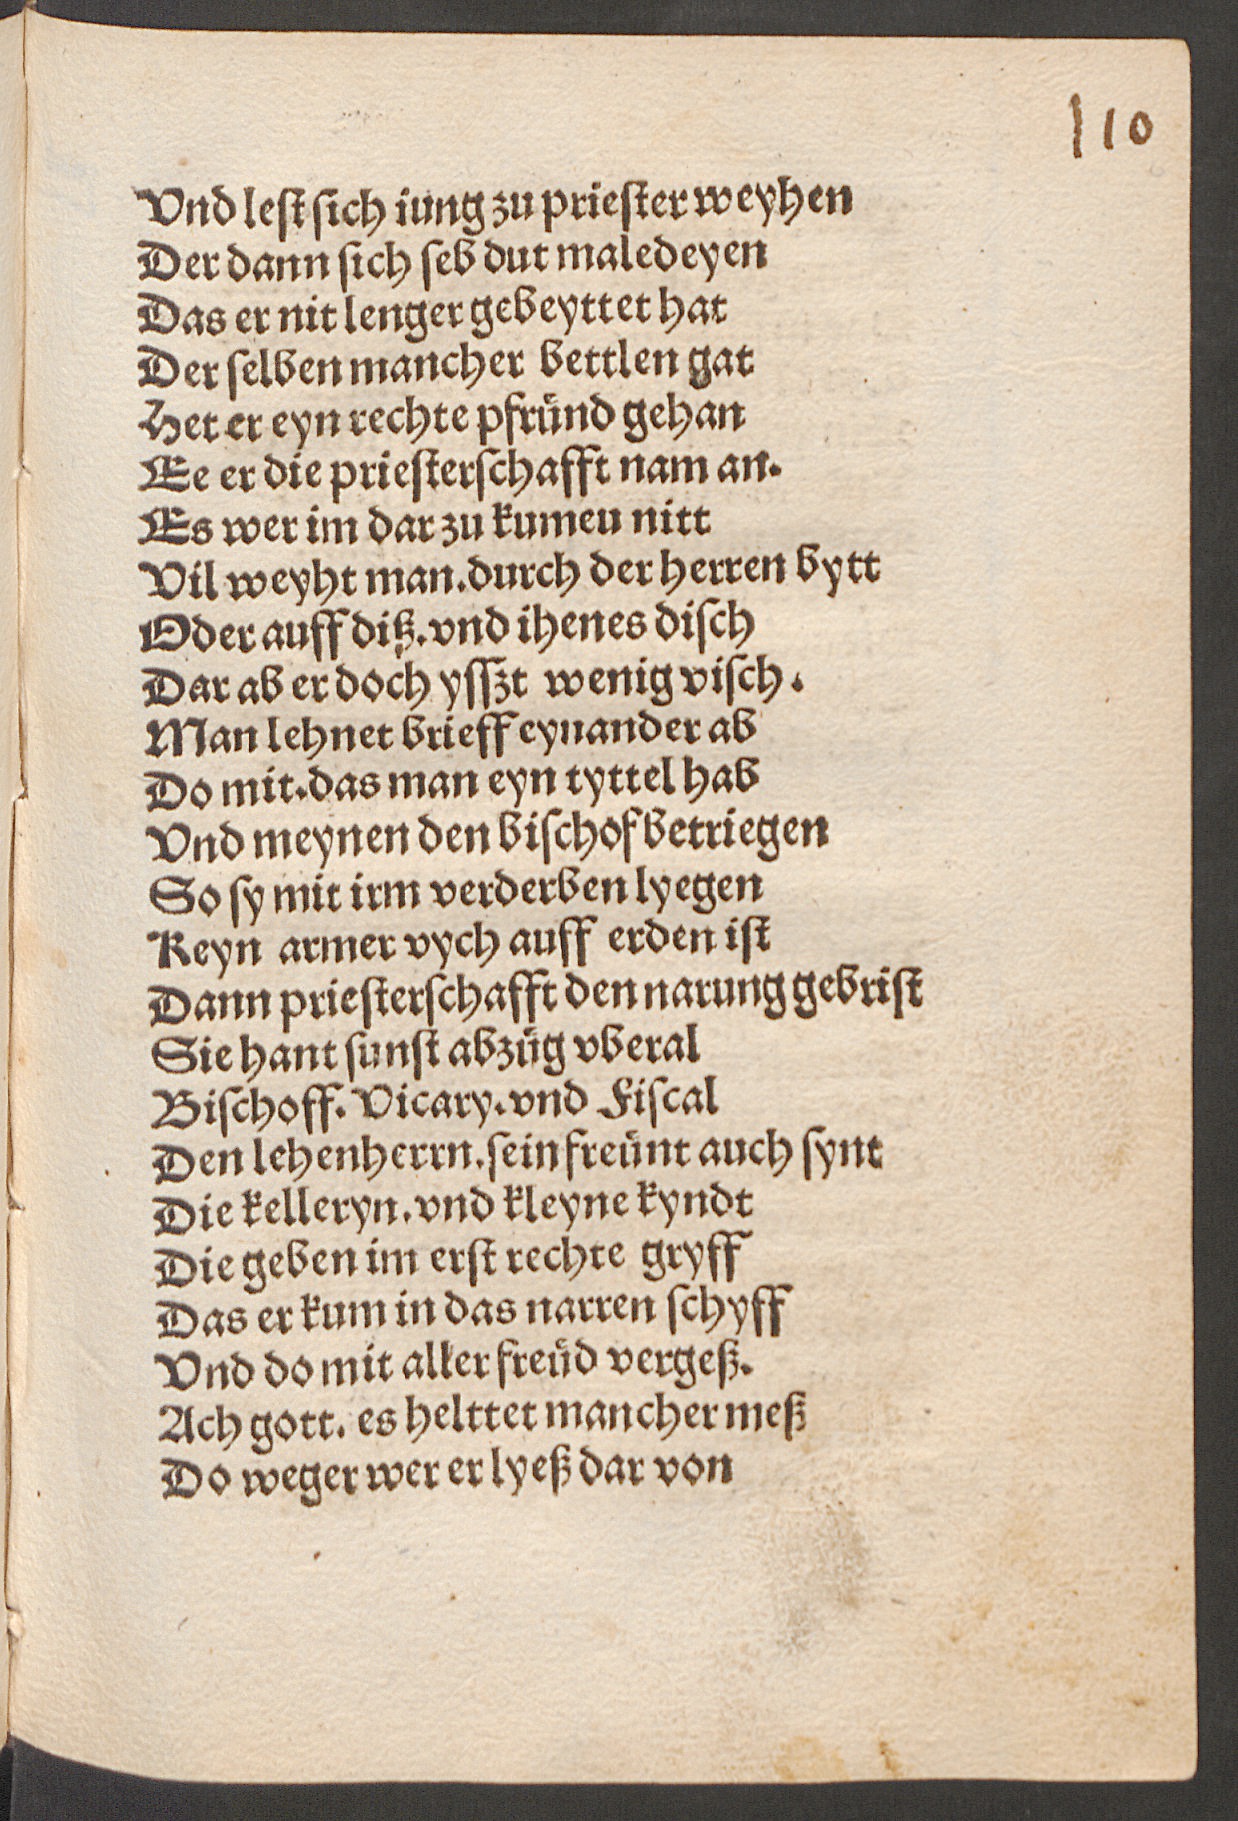 110
Vnd lest sich iung zu priester weyhen
Der dann sich seb dut maledeyen
Das er nit lenger gebeyttet hat
Der selben mancher bettlen gat
Het er eyn rechte pfründ gehan
Ee er die priesterschafft nam an.
Es wer im dar zu kumeu nitt
Vil weyht man. durch der herren bytt
Oder auff diß. vnd ihenes disch
Dar ab er doch ysszt wenig visch.
Man lehnet brieff eynander ab
Do mit. das man eyn tyttel hab
Vnd meynen den bischof betriegen
So sy mit irm verderben lyegen
Keyn armer vych auff erden ist
Dann priesterschafft den narung gebrist
Sie hant sunst abzüg vberal
Bischoff. Vicary. vnd Fiscal
Den lehenherrn. sein freünt auch synt
Die kelleryn. vnd kleyne kyndt
Die geben im erst rechte gryff
Das er kum in das narren schyff
Vnd do mit aller freüd vergeß.
Ach gott. es helttet mancher meß
Do weger wer er lyeß dar von